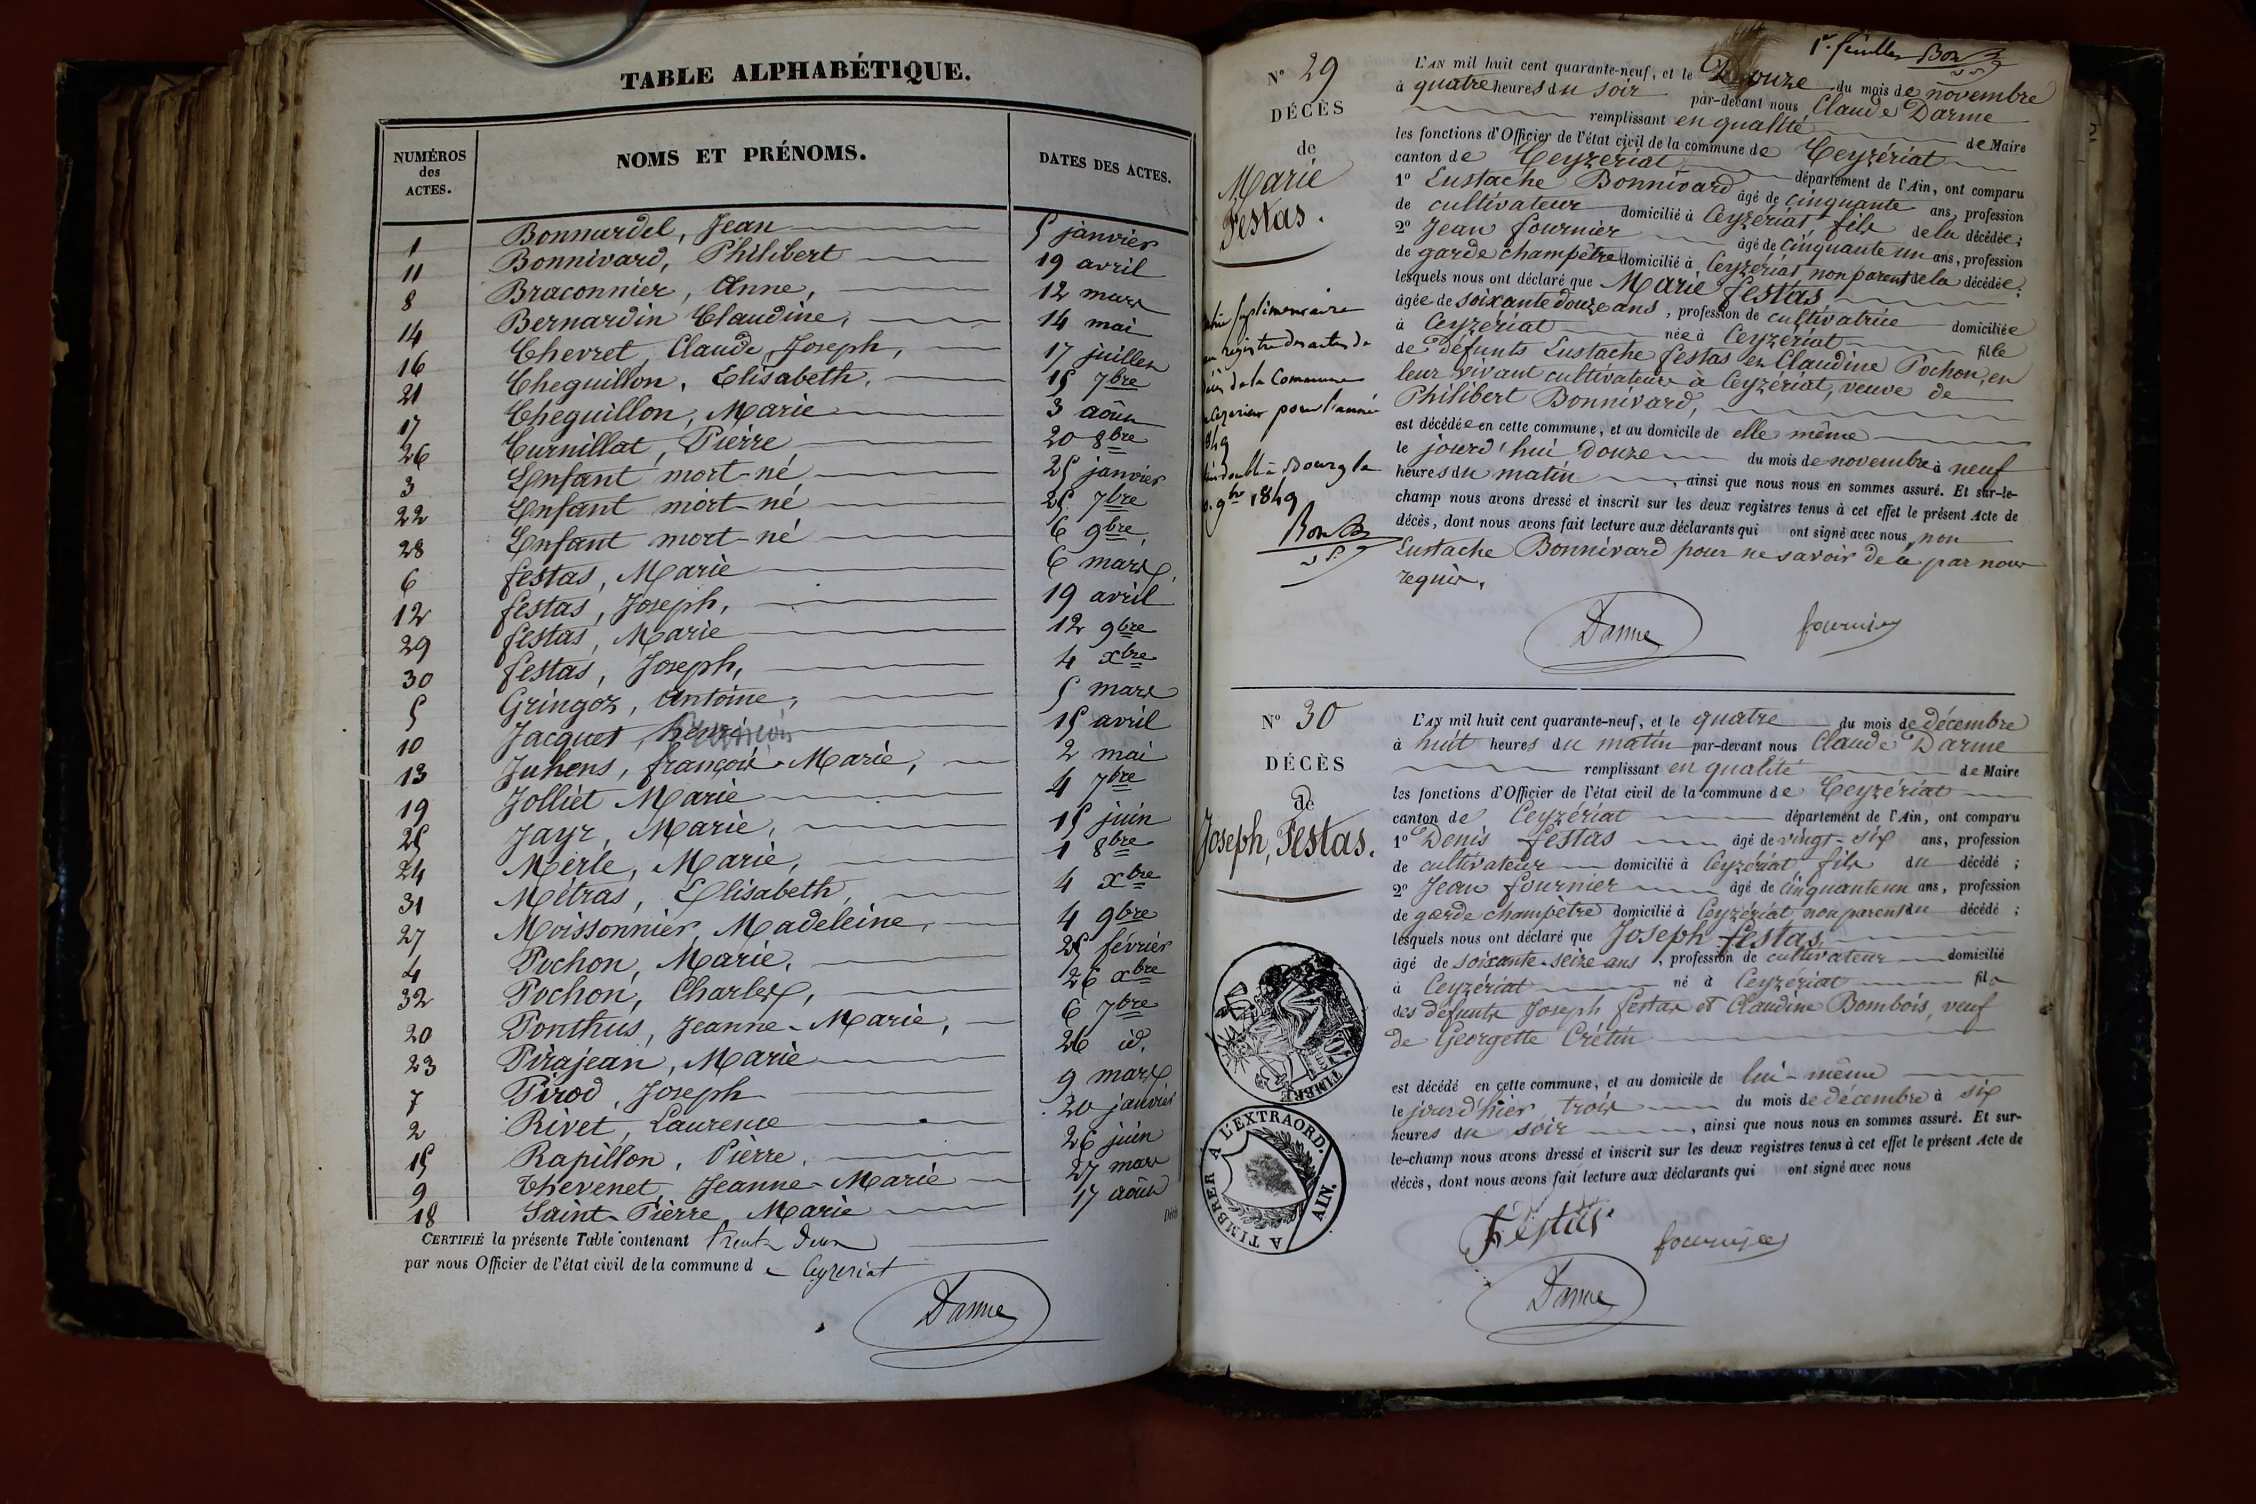 TABLE ALPHABÉTIQUE.
NUMÉROS des ACTES. NOMS ET PRÉNOMS. DATES DES ACTES.
1 Bonnardel, Jean 5 janvier
11 Bonnivard, Philibert 19 avril
8 Braconnier, Anne, 12 mars
14 Bernardin Claudine, 14 mai
16 Chevret, Claude Joseph, 17 juillet
21 Cheguillon, Elisabeth, 15 7bre
17 Cheguillon, Marie 3 août
26 Curnillat, Pierre 20 8bre
3 Enfant mort-né 25 janvier
22 Enfant mort-né 25 7bre
28 Enfant mort-né 6 9bre
6 festas, Marie 6 mars
12 festas, Joseph, 19 avril
29 festas, Marie 12 9bre
30 festas, Joseph, 4 xbre
5 Gringoz, Antoine, 5 mars
10 Jacquet, 15 avril
13 Juhens, françois-Marie, 2 mai
19 Jolliet Marie 4 7bre
25 Jayr, Marie, 15 juin
24 Merle, Marie, 1 8bre
31 Métras, Elisabeth, 4 xbre
27 Moissonnier Madeleine, 4 9bre
4 Pochon, Marie, 25 février
32 Pochon, Charles, 26 xbre
20 Ponthus, Jeanne-Marie, 6 7bre
23 Pirajean, Marie 26 id.
7 Pirod, Joseph 9 mars
2 Rivet, Laurence 20 janvier
15 Rapillon, Pierre, 26 juin
9 Thevenet, Jeanne-Marie 27 mars
18 Saint-Pierre, Marie 17 août
CERTIFIÉ la présente Table contenant trente deux
par nous Officier de l'état civil de la commune de Ceyzeriat
Darme
1er feuillet
N° 29
DÉCÈS
de
Marie
Festas.
supplémentaire
au registre des actes de
décès de la Commune
Ceyzeriat pour l'année
1849
à Bourg le
9bre 1849
L'AN mil huit cent quarante-neuf, et le Douze du mois de novembre
à quatre heures du soir par-devant nous Claude Darme
remplissant en qualité de Maire
les fonctions d'Officier de l'état civil de la commune de Ceyzériat
canton de Ceyzériat département de l'Ain, ont comparu
1° Eustache Bonnivard âgé de cinquante ans, profession
de cultivateur domicilié à Ceyzériat fils de la décédée;
2° Jean fournier âgé de cinquante un ans, profession
de garde champêtre domicilié à Ceyzériat non parent de la décédée;
lesquels nous ont déclaré que Marie festas
âgée de soixante douze ans, profession de cultivatrice domiciliée
à Ceyzériat née à Ceyzériat fille
de défunts Eustache festas et Claudine Pochon, en
leur vivant cultivateurs à Ceyzériat, veuve de
Philibert Bonnivard,
est décédée en cette commune, et au domicile de elle même
le jourd'hui Douze du mois de novembre à neuf
heures du matin, ainsi que nous nous en sommes assuré. Et sur-le-
champ nous avons dressé et inscrit sur les deux registres tenus à cet effet le présent Acte de
décès, dont nous avons fait lecture aux déclarants qui ont signé avec nous, non
Eustache Bonnivard pour ne savoir de ce par nous
requis.
Darme fournier
N° 30
DÉCÈS
de
Joseph, Festas.
L'AN mil huit cent quarante-neuf, et le quatre du mois de décembre
à huit heures du matin par-devant nous Claude Darme
remplissant en qualité de Maire
les fonctions d'Officier de l'état civil de la commune de Ceyzériat
canton de Ceyzériat département de l'Ain, ont comparu
1° Denis festas âgé de vingt-six ans, profession
de cultivateur domicilié à Ceyzériat fils du décédé;
2° Jean fournier âgé de cinquante un ans, profession
de garde champêtre domicilié à Ceyzériat non parent du décédé;
lesquels nous ont déclaré que Joseph festas
âgé de soixante-seize ans, profession de cultivateur domicilié
à Ceyzériat né à Ceyzériat fils
des défunts Joseph festas et Claudine Bombois, veuf
de Georgette Crétin
est décédé en cette commune, et au domicile de lui-même
le jourd'hier trois du mois de décembre à six
heures du soir, ainsi que nous nous en sommes assuré. Et sur-
le-champ nous avons dressé et inscrit sur les deux registres tenus à cet effet le présent Acte de
décès, dont nous avons fait lecture aux déclarants qui ont signé avec nous
Festas fournier
Darme
TIMBRE
A TIMBRER A L'EXTRAORD.
AIN.